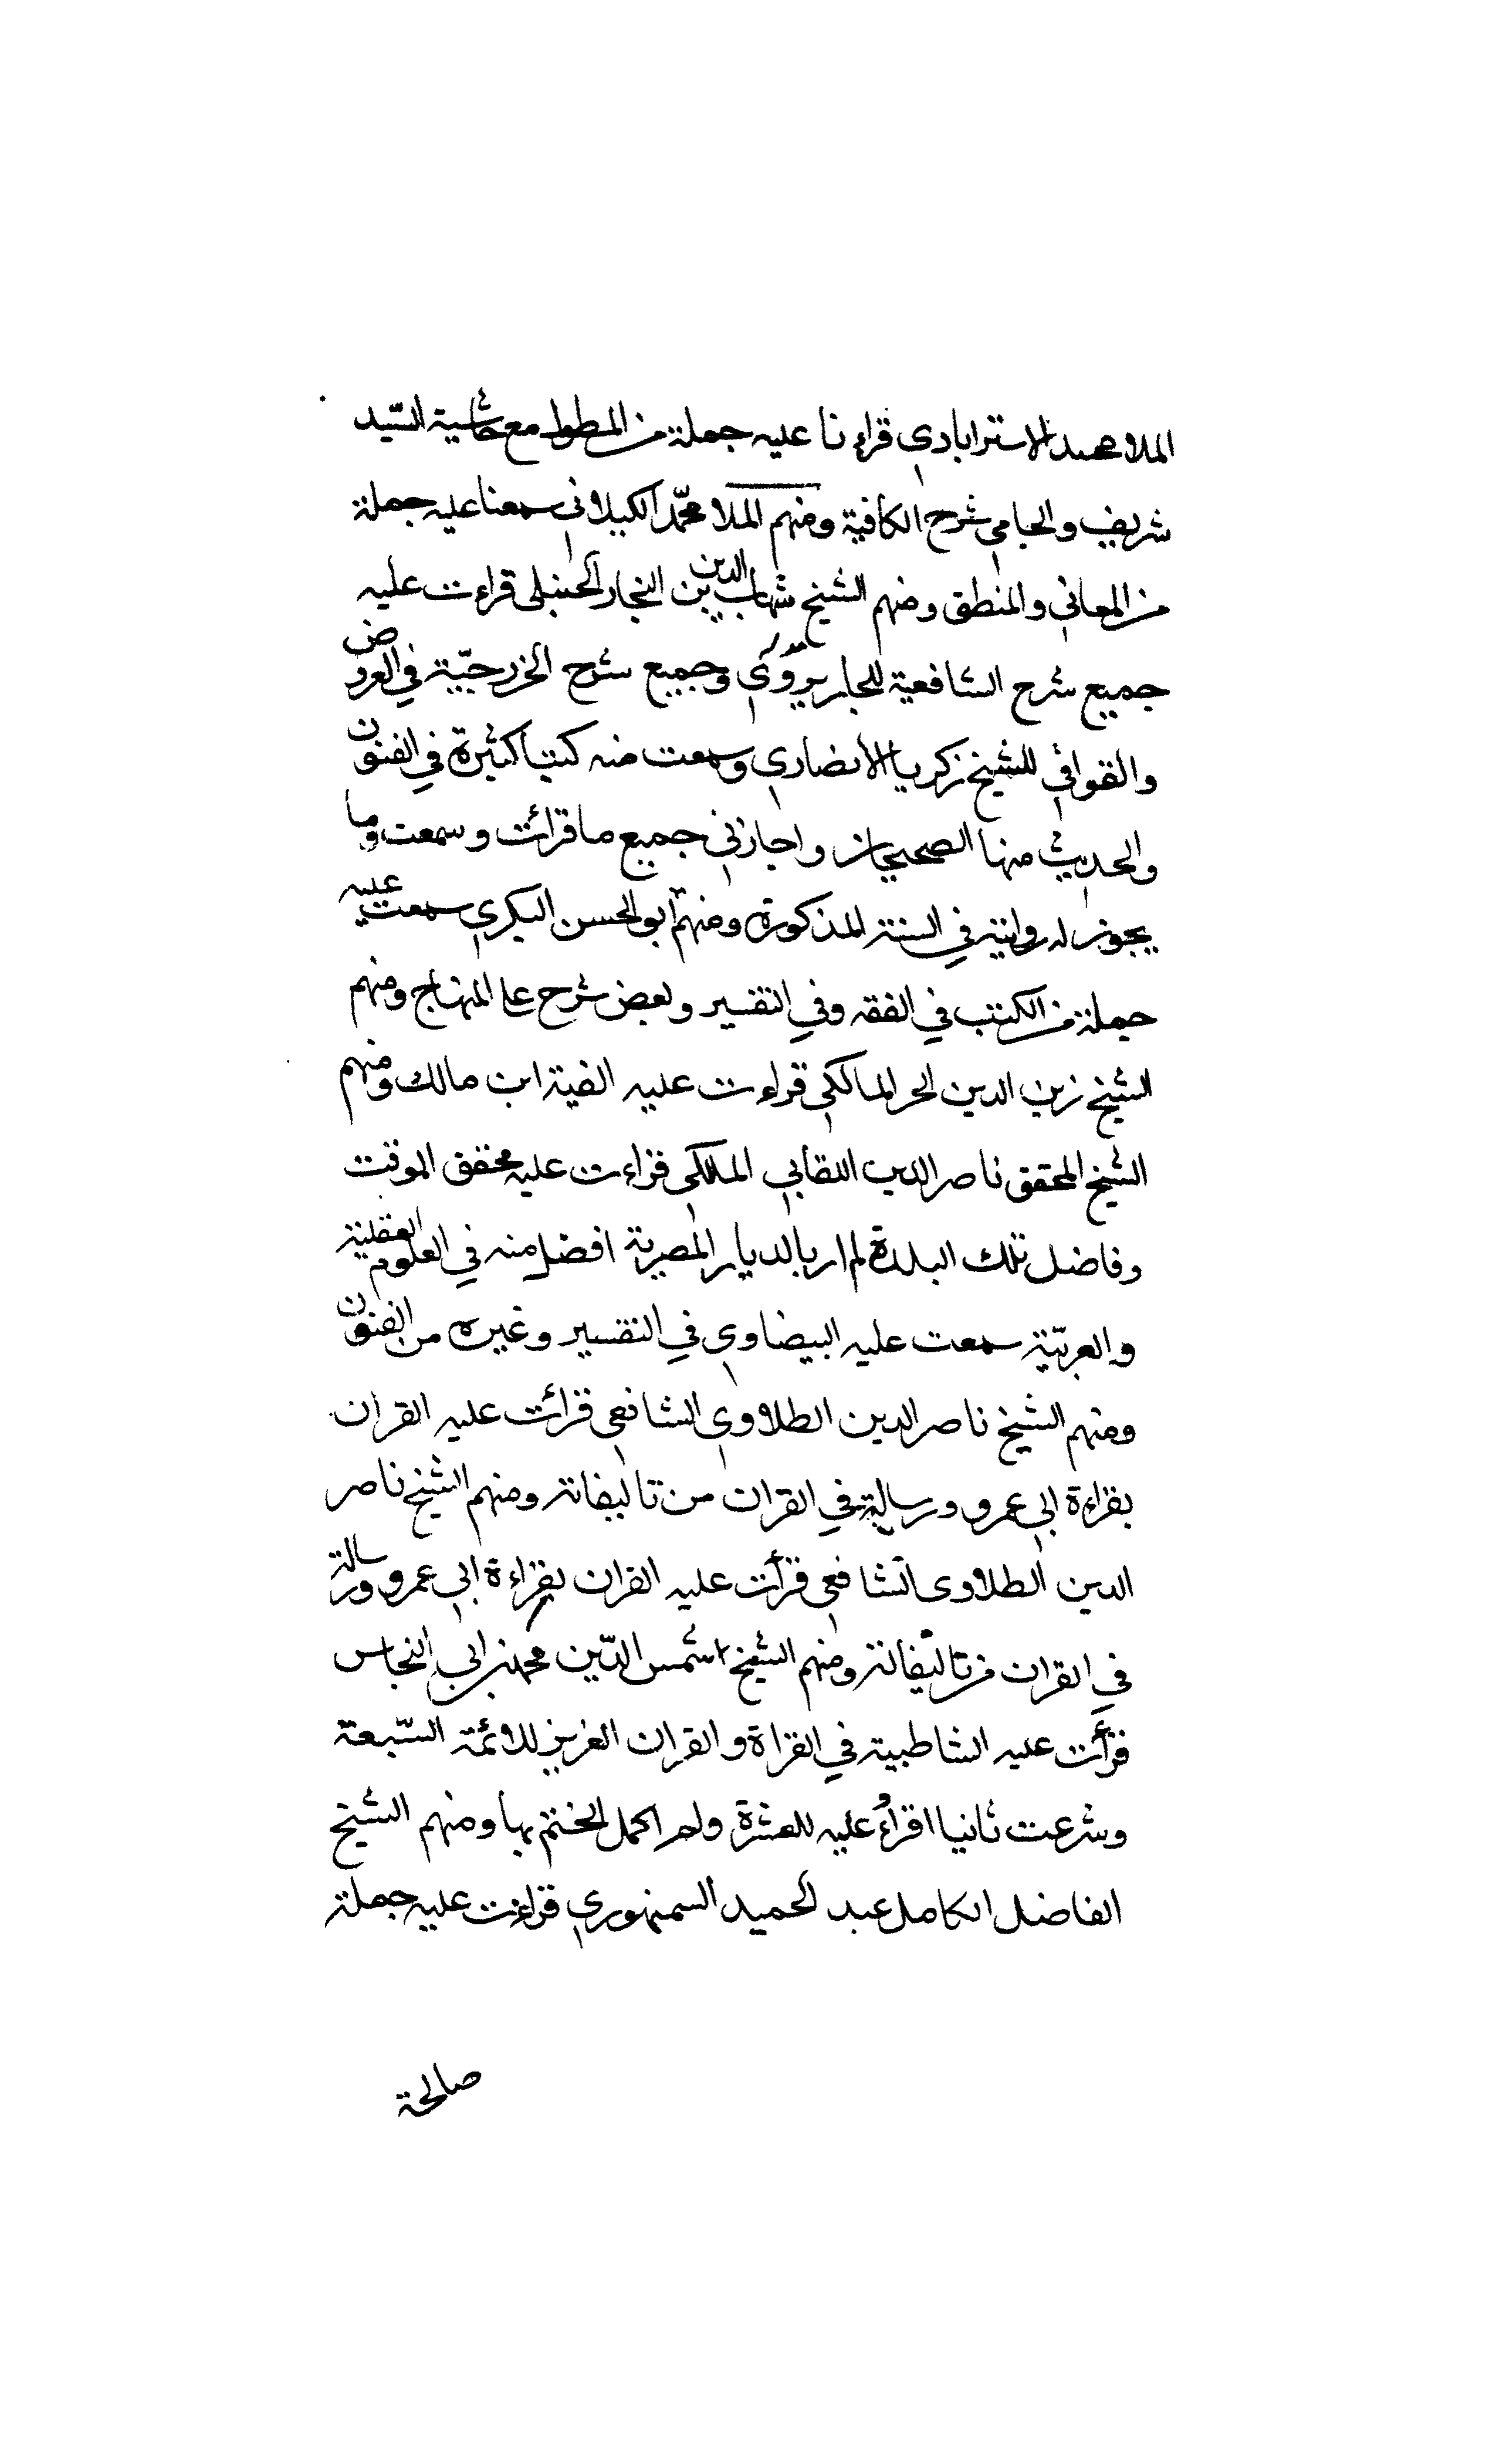 الملا محمد الاسترابادي قراءنا عليه جملة من المطول مع حاشية السّيد
شريف والجامي شرح الكافية ومنهم الملا محمّد الكيلاني سمعنا عليه جملة
من المعاني والمنطق ومنهم الشيخ شهاب الدين بن النجار الحنبلي قراءت عليه
جميع شرح الشافعية للجاربردي وجميع شرح الخزرجيّة في العروض
والقوافي للشيخ زكريا الانصاري وسمعت منه كتبا كثيرة في الفنون
والحديث منها الصحيحان واجازني جميع ما قرائت وسمعت وما
يجوز له روايته في السنة المذكورة ومنهم ابو الحسن البكري سمعت عليه
جملة من الكتب في الفقه وفي التفسير وبعض شرح علي المنهاج ومنهم
الشيخ زين الدين الحر المالكي قراءت عليه الفية ابن مالك ومنهم
الشيخ المحقق ناصر الدين اللقاني المالكي قراءت عليه محقق الوقت
وفاضل تلك البلدة لم ار بالديار المصرية افضل منه في العلوم العقلية
والعربيّة سمعت عليه البيضاوي في التفسير وغيره من الفنون
ومنهم الشيخ ناصر الدين الطلاوي الشافعي قرائت عليه القران
بقراءة ابي عمرو ورسالة في القران من تاليفاته ومنهم الشيخ ناصر
الدين الطلاوى الشافعي قرأت عليه القران بقراءة ابي عمرو ورسالة
في القران من تاليفاته ومنهم الشيخ شمس الدّين محمد بن ابي النجاس
قرأت عليه الشاطبية في القراة والقران العزيز للائمة السّبعة
وشرعت ثانيا اقرأ عليه للعشرة ولم اكمل الختم بها ومنهم الشيخ
الفاضل الكامل عبد الحميد السمنهوري قراءت عليه جملة
صالحة